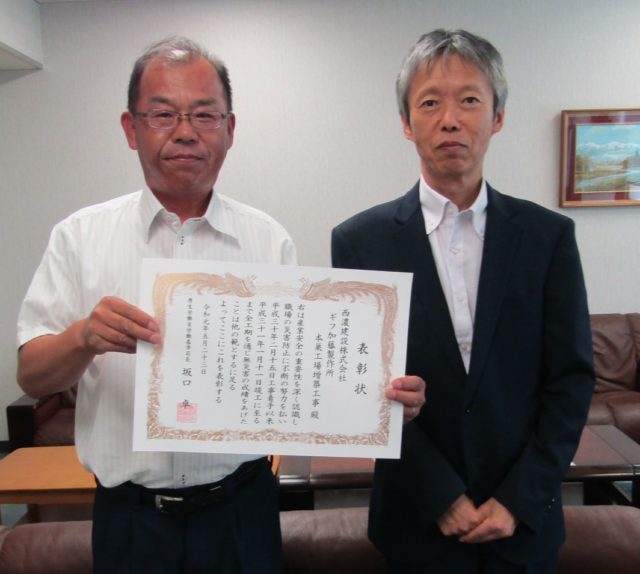 表彰状
西濃建設株式会社
ギフ加藤製作所
本巣工場増築工事 殿
右は産業安全の重要性を深く認識し
職場の災害防止に不断の努力を払い
平成三十年二月十五日工事着手以来
平成三十一年一月十一日竣工に至る
まで全工期を通じ無災害の成績をあげた
ことは他の範とするに足る
よってここにこれを表彰する
令和元年五月二十三日
厚生労働省労働基準局長 坂口 卓